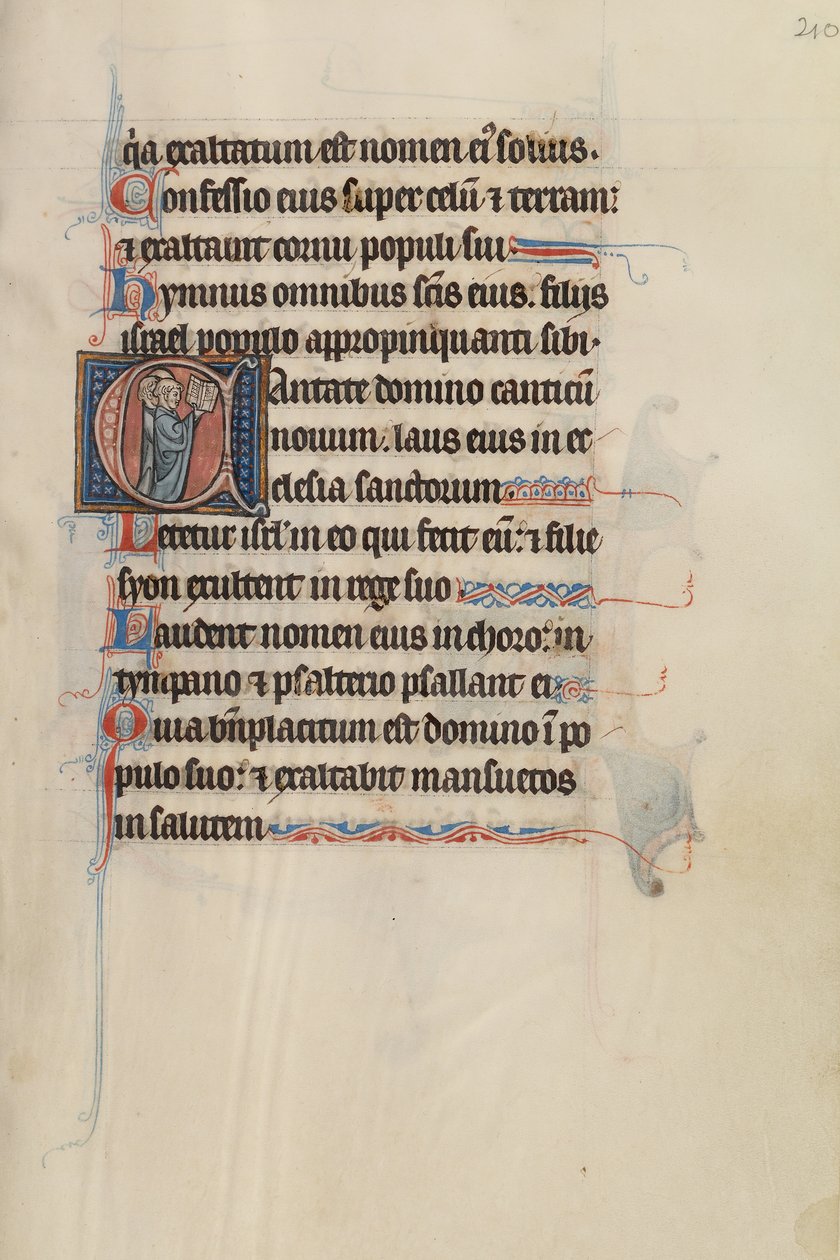 210
q̇a exaltatum est nomen ei⁹ solius.
Confessio eius super celū ⁊ terram:
⁊ exaltauit cornu populi sui
hymnus omnibus sc̄is eius. filijs
israel populo appropinquanti sibi.
CAntate domino canticū
nouum. laus eius in ec
clesia sanctorum.
Letetur isrl' in eo qui fecit eū: ⁊ filie
syon exultent in rege suo
Laudent nomen eius in choro: in
tympano ⁊ psalterio psallant ei
Quia bn̄placitum est domino ī po
pulo suo: ⁊ exaltabit mansuetos
in salutem